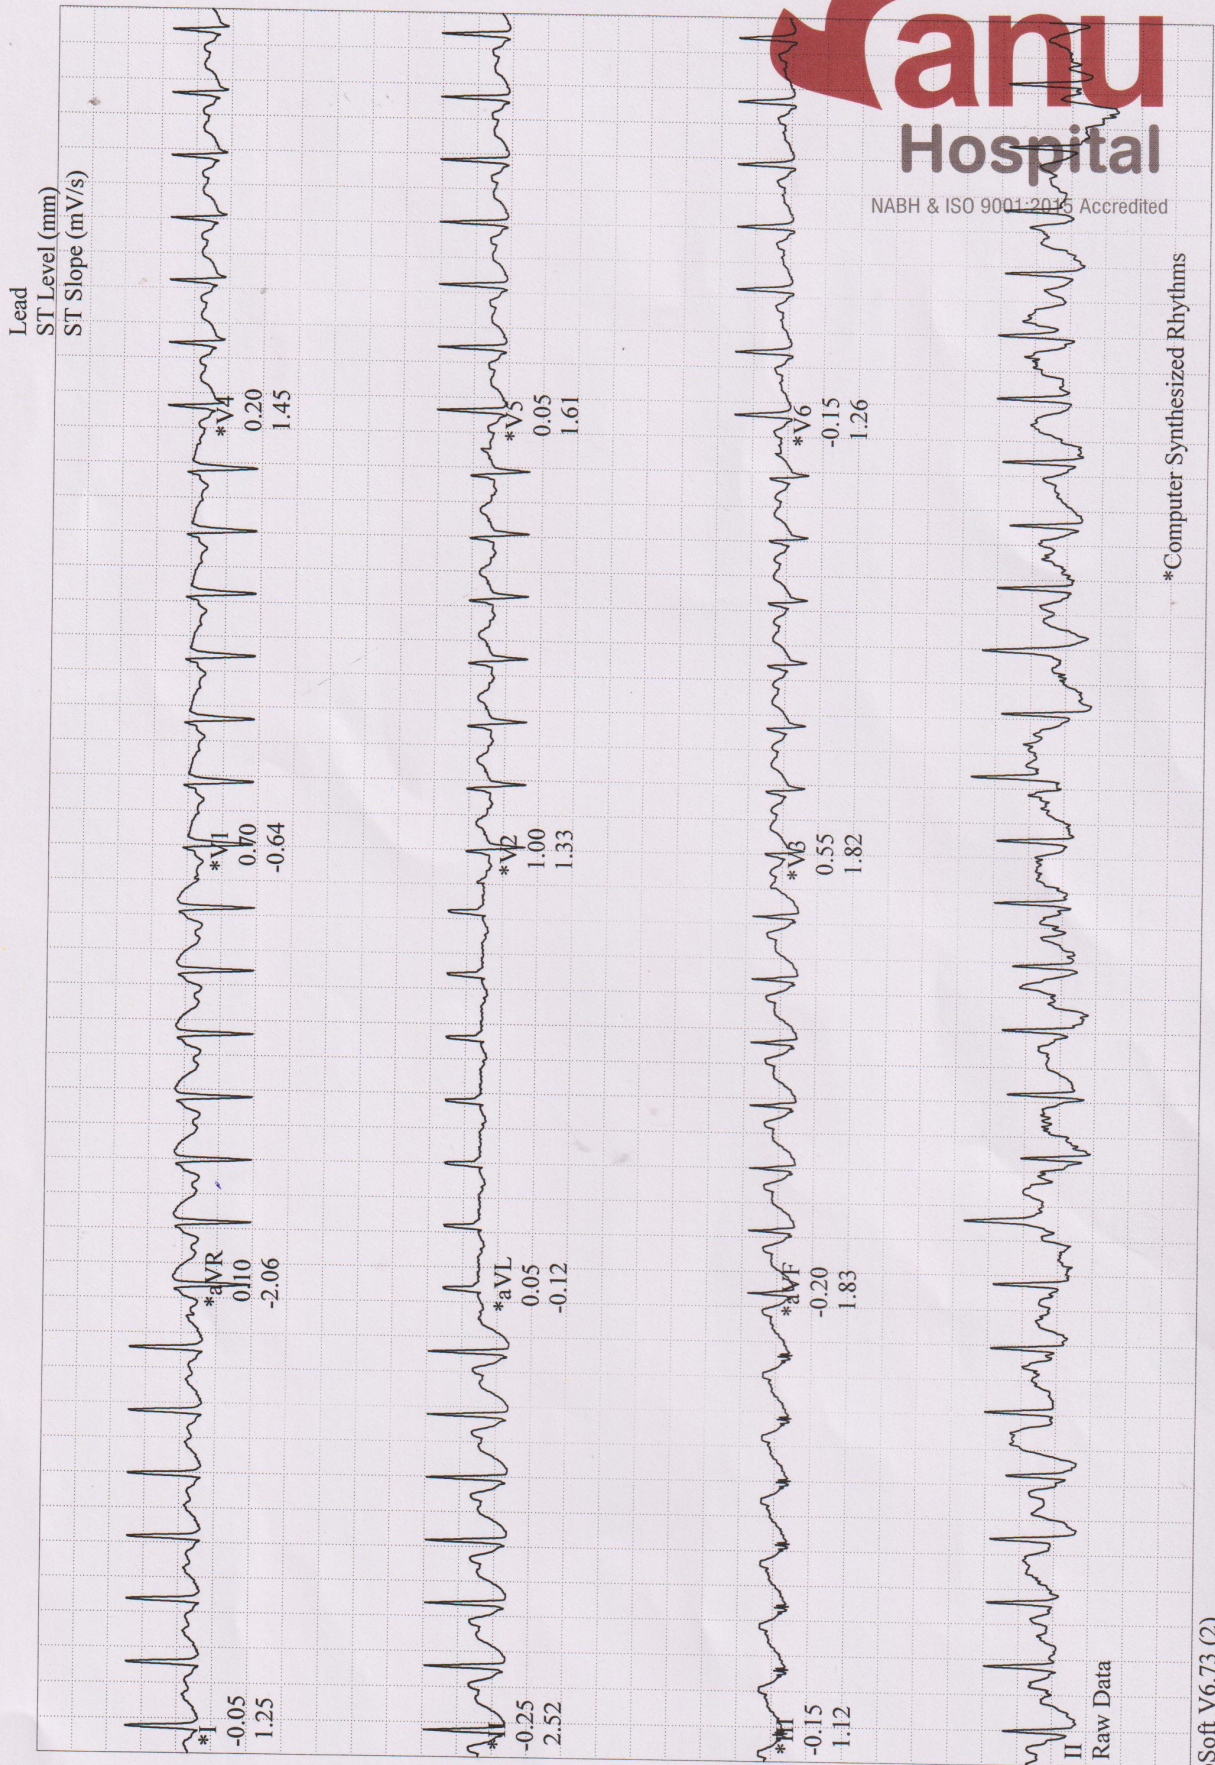 anu
Hospital
NABH & ISO 9001:2015 Accredited
Lead
ST Level (mm)
ST Slope (mV/s)
*I
-0.05
1.25
*aVR
0.10
-2.06
*V1
0.70
-0.64
*V4
0.20
1.45
*II
-0.25
2.52
*aVL
0.05
-0.12
*V2
1.00
1.33
*V5
0.05
1.61
*III
-0.15
1.12
*aVF
-0.20
1.83
*V3
0.55
1.82
*V6
-0.15
1.26
II
Raw Data
*Computer Synthesized Rhythms
Soft V6.73 (2)